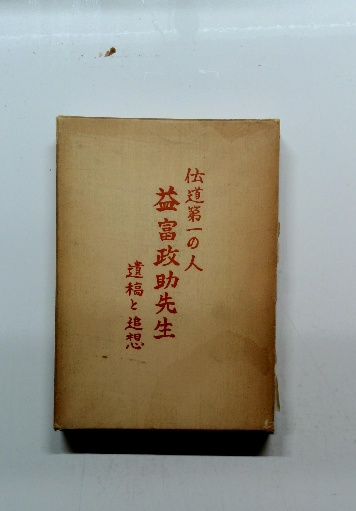 伝道第一の人
益富政助先生
遺稿と追想